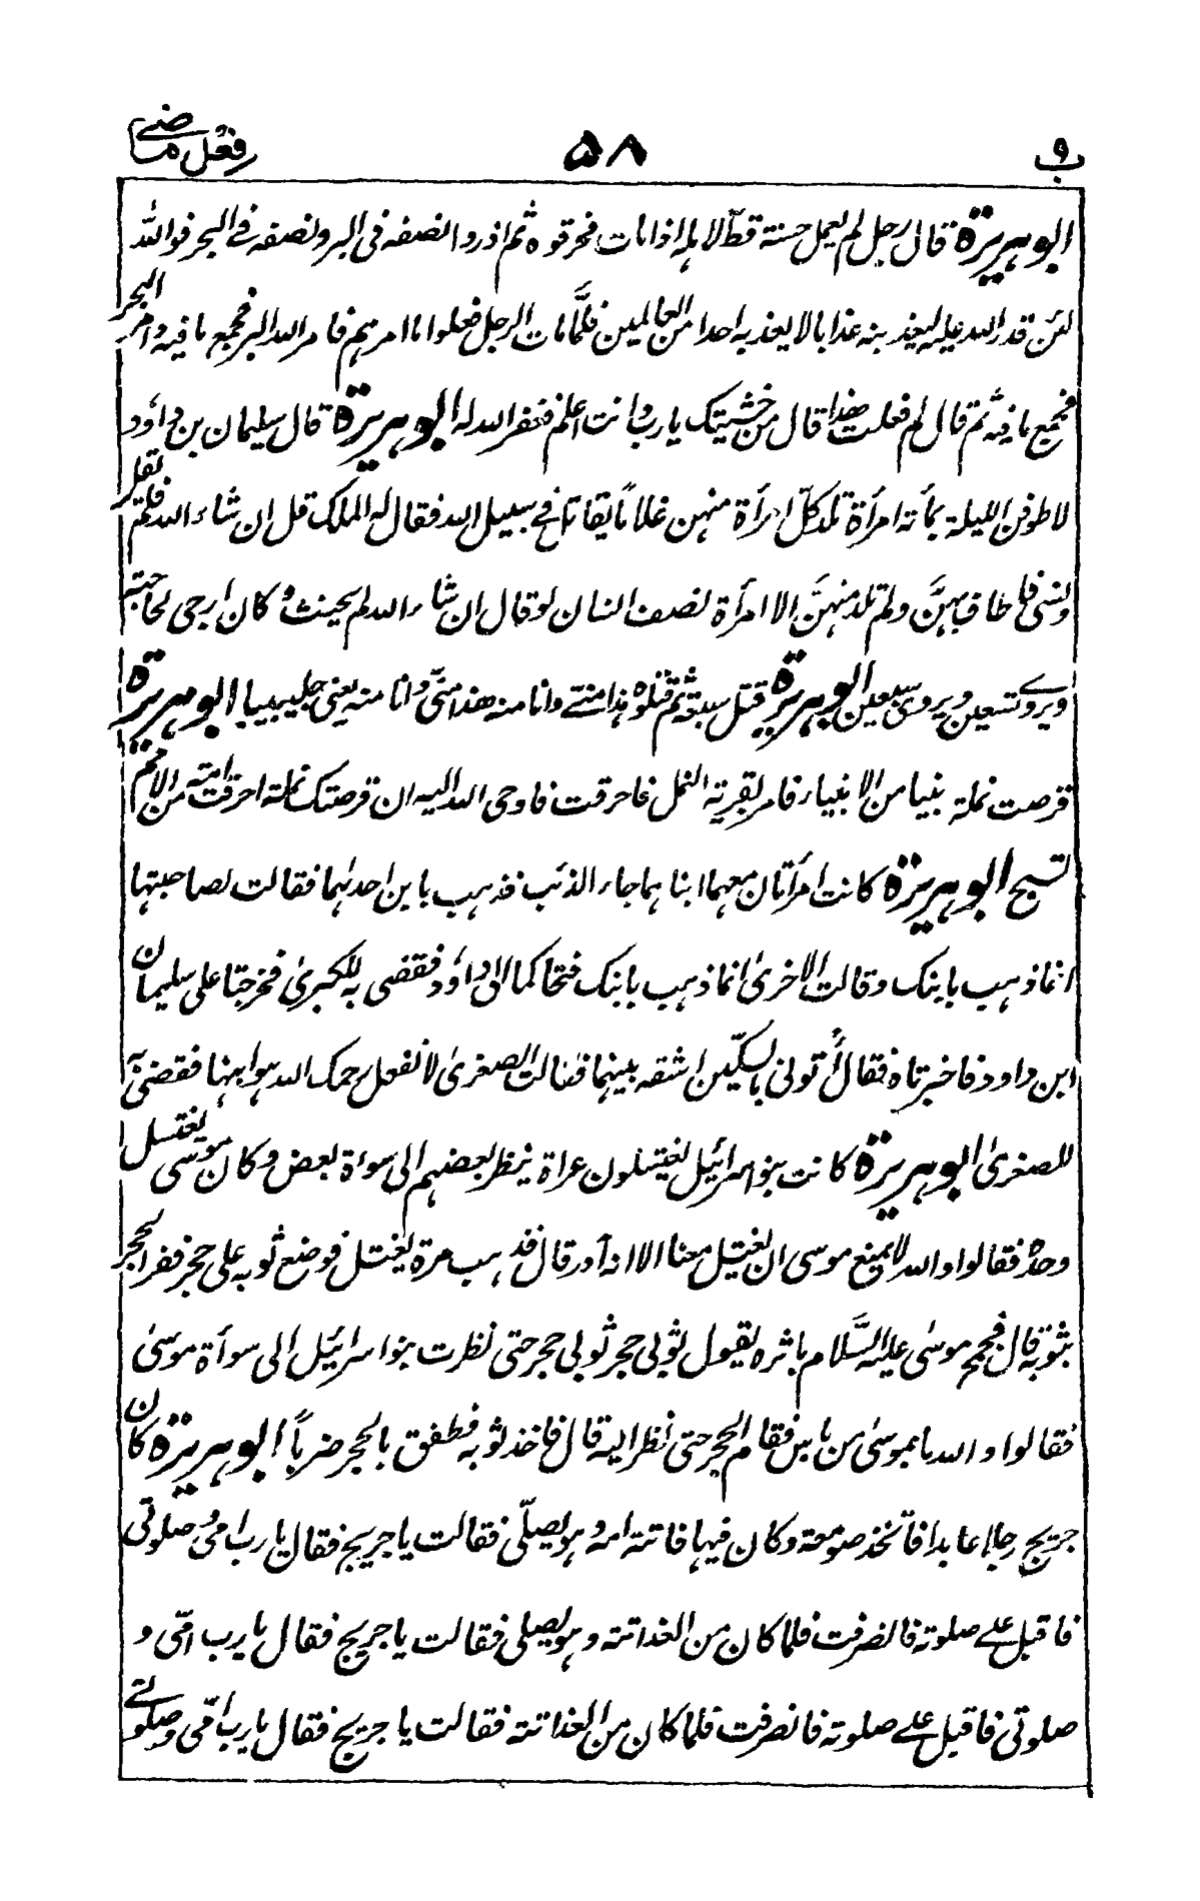 ب ۹ ۵۸ فعل ماضی
ابو ہریرۃ قال رجل لم یعمل حسنۃ قطّ لاہلہ اذا مات فحرقوہ ثم اذروا نصفہ فی البر و نصفہ فی البحر فواللہ
لئن قدر اللہ علیہ لیعذبنہ عذابا لا یعذبہ احدا من العالمین فلمّا مات الرجل فعلوا ما امرہم فامر اللہ البر فجمع ما فیہ و امر البحر
فجمع ما فیہ ثم قال لم فعلت ھذا قال من خشیتک یا رب و انت اعلم فغفر اللہ لہ ابو ہریرۃ قال سلیمان بن داؤد
لاطوفن اللیلۃ بمأتہ امرأۃ تلد کلّ امرأۃ منہن غلامًا یقاتل فی سبیل اللہ فقال لہ الملک قل ان شاء اللہ فلم یقل
و نسی فاطاف بہنَّ و لم تلد منہنَّ الا امرأۃ نصف انسان لو قال ان شاء اللہ لم یحنث و کان ارجی لحاجتہ
ویروی تسعین و یروی سبعین ابو ہریرۃ قتل سبعۃ ثم قتلوہ ہذا منی و انا منہ ھذا منّی و انا منہ یعنی جلیبیبا ابو ہریرۃ
قرصت نملۃ نبیا من الانبیاء فامر بقریۃ النمل فاحرقت فاوحی اللہ الیہ ان قرصتک نملۃ احرقت امۃ من الامم
تسبح ابو ہریرۃ کانت امرأتان معہما ابناہما جاء الذئب فذہب بابن احدٰہما فقالت لصاحبتہا
انما ذہب بابنک و قالت الاخریٰ انما ذہب بابنک فتحاکما الی داؤد فقضی بہ للکبریٰ فخرجتا علی سلیمان
ابن داود فاخبرتاہ فقال أتونی بالسکّین اشقہ بینہما فقالت الصغریٰ لا تفعل رحمک اللہ ہو ابنہا فقضیٰ بہٖ
للصغریٰ ابو ہریرۃ کانت بنو اسرائیل یغتسلون عراۃ ینظر بعضہم الی سوءۃ بعض و کان موسی یغتسل
وحدہ فقالوا واللہ لا یمنع موسی ان یغتسل معنا الا انہ آدر قال فذہب مرۃ یغتسل فوضع ثوبہ علی حجر ففر الحجر
بثوبہ قال فجمح موسٰی علیہ السَّلام باثرہ یقول ثوبی حجر ثوبی حجر حتی نظرت بنو اسرائیل الی سوأۃ موسیٰ
فقالوا واللہ ما بموسٰی من باس فقام الحجر حتی نظر الیہ قال فاخذ ثوبہ فطفق بالحجر ضرباً ابو ہریرۃ کان
جریج رجلا عابدا فاتّخذ صومعۃ و کان فیہا فاتتہ امہ و ہو یصلّی فقالت یا جریج فقال یا رب امی و صلوتی
فاقبل علے صلوتہ فانصرفت فلما کان من الغد اتتہ و ہو یصلی فقالت یا جریج فقال یا رب امّی و
صلوتی فاقبل علے صلوتہ فانصرفت فلما کان من الغد اتتہ فقالت یا جریج فقال یا رب امّی و صلوتے